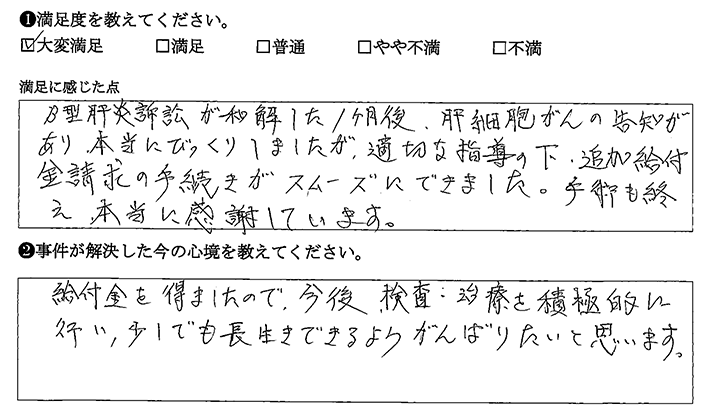 ❶満足度を教えてください。
☑大変満足 □満足 □普通 □やや不満 □不満
満足に感じた点
B型肝炎訴訟が和解した1ヶ月後、肝細胞がんの告知が
あり、本当にびっくりしましたが、適切な指導の下、追加給付
金請求の手続きがスムーズにできました。手術も終
え、本当に感謝しています。
❷事件が解決した今の心境を教えてください。
給付金を得ましたので、今後、検査・治療を積極的に
行い、少しでも長生きできるようがんばりたいと思います。